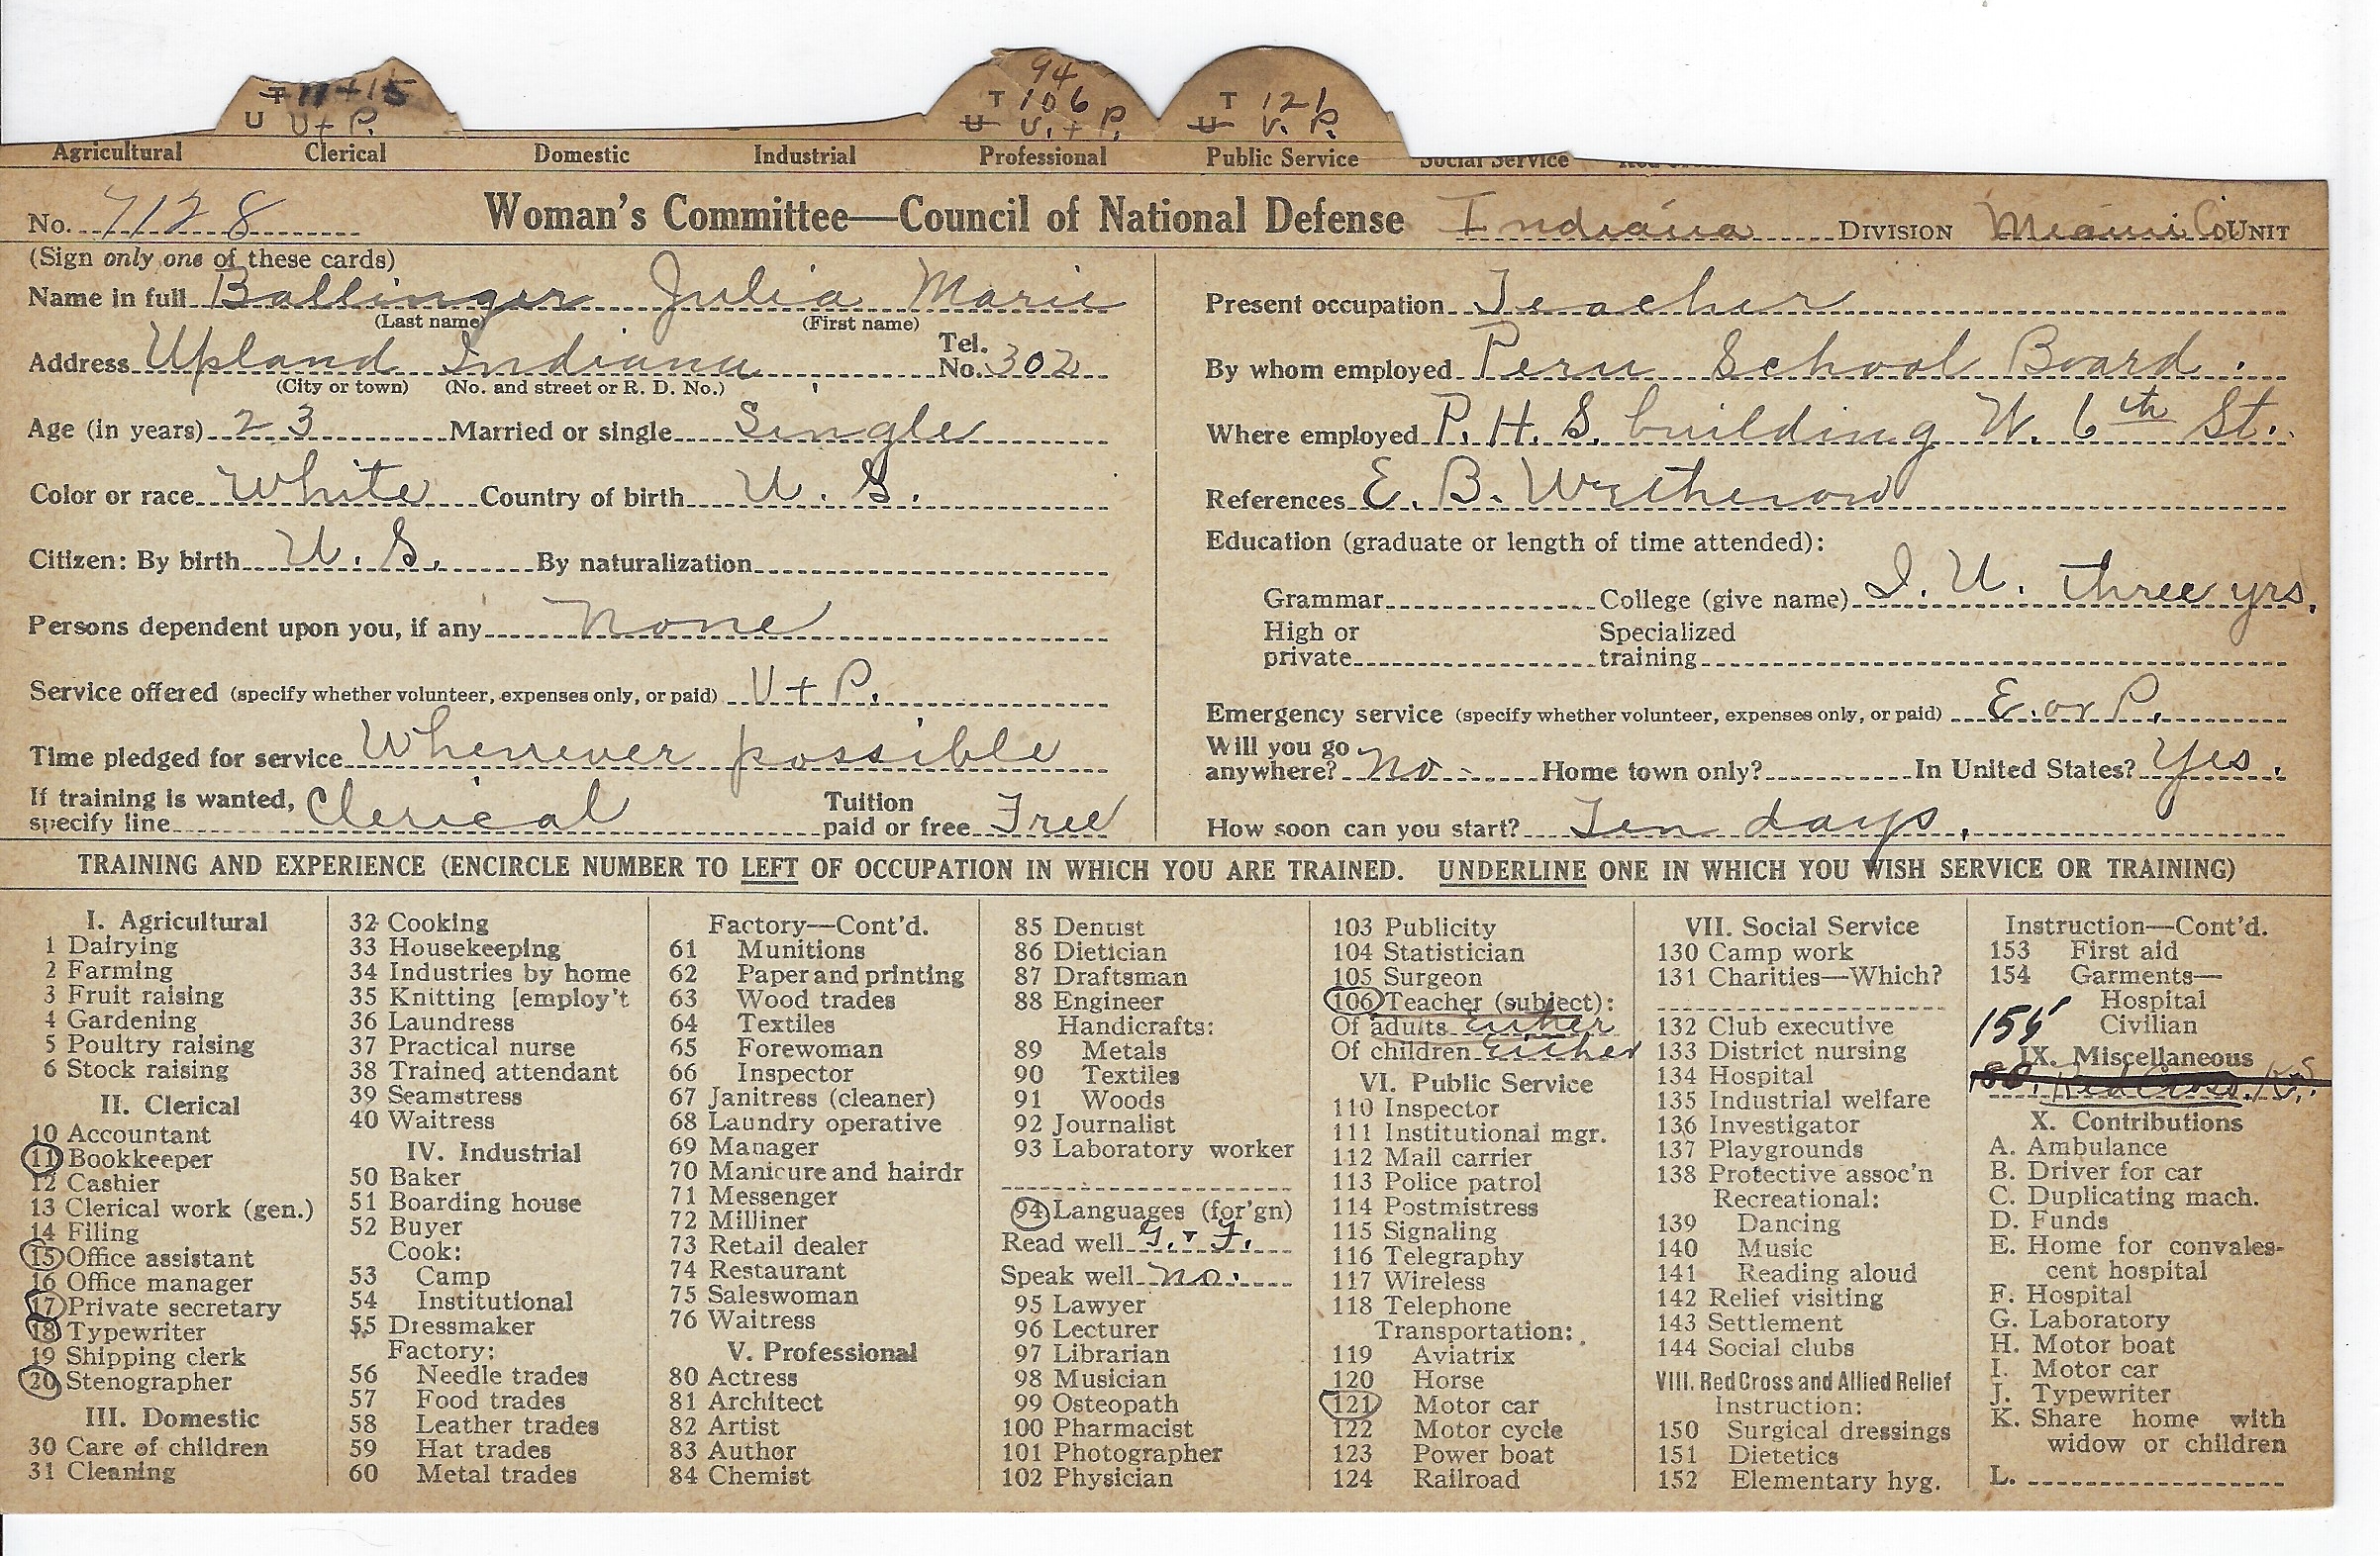 T 11+15
U U + P.
94
T 106
U U. + P.
T 121
U V. P.
Agricultural Clerical Domestic Industrial Professional Public Service Social Service
No. 7128 Woman's Committee—Council of National Defense Indiana DIVISION Miami Co UNIT
(Sign only one of these cards)
Name in full Ballinger Julia Marie
(Last name) (First name)
Address Upland Indiana Tel. No. 302
(City or town) (No. and street or R. D. No.)
Age (in years) 23 Married or single Single
Color or race White Country of birth U. S.
Citizen: By birth U. S. By naturalization
Persons dependent upon you, if any None
Service offered (specify whether volunteer, expenses only, or paid) V + P.
Time pledged for service Whenever possible
If training is wanted, specify line Clerical Tuition paid or free Free
Present occupation Teacher
By whom employed Peru School Board.
Where employed P. H. S. building W. 6th St.
References E. B. Wetherow
Education (graduate or length of time attended):
Grammar College (give name) I. U. three yrs.
High or private Specialized training
Emergency service (specify whether volunteer, expenses only, or paid) E. or P.
Will you go anywhere? No Home town only? In United States? Yes.
How soon can you start? Ten days.
TRAINING AND EXPERIENCE (ENCIRCLE NUMBER TO LEFT OF OCCUPATION IN WHICH YOU ARE TRAINED. UNDERLINE ONE IN WHICH YOU WISH SERVICE OR TRAINING)
I. Agricultural
1 Dairying
2 Farming
3 Fruit raising
4 Gardening
5 Poultry raising
6 Stock raising
II. Clerical
10 Accountant
11 Bookkeeper
12 Cashier
13 Clerical work (gen.)
14 Filing
15 Office assistant
16 Office manager
17 Private secretary
18 Typewriter
19 Shipping clerk
20 Stenographer
III. Domestic
30 Care of children
31 Cleaning
32 Cooking
33 Housekeeping
34 Industries by home
35 Knitting [employ't
36 Laundress
37 Practical nurse
38 Trained attendant
39 Seamstress
40 Waitress
IV. Industrial
50 Baker
51 Boarding house
52 Buyer
Cook:
53 Camp
54 Institutional
55 Dressmaker
Factory:
56 Needle trades
57 Food trades
58 Leather trades
59 Hat trades
60 Metal trades
Factory—Cont'd.
61 Munitions
62 Paper and printing
63 Wood trades
64 Textiles
65 Forewoman
66 Inspector
67 Janitress (cleaner)
68 Laundry operative
69 Manager
70 Manicure and hairdr
71 Messenger
72 Milliner
73 Retail dealer
74 Restaurant
75 Saleswoman
76 Waitress
V. Professional
80 Actress
81 Architect
82 Artist
83 Author
84 Chemist
85 Dentist
86 Dietician
87 Draftsman
88 Engineer
Handicrafts:
89 Metals
90 Textiles
91 Woods
92 Journalist
93 Laboratory worker
94 Languages (for'gn)
Read well G. + F.
Speak well no.
95 Lawyer
96 Lecturer
97 Librarian
98 Musician
99 Osteopath
100 Pharmacist
101 Photographer
102 Physician
103 Publicity
104 Statistician
105 Surgeon
106 Teacher (subject):
Of adults Either
Of children Either
VI. Public Service
110 Inspector
111 Institutional mgr.
112 Mail carrier
113 Police patrol
114 Postmistress
115 Signaling
116 Telegraphy
117 Wireless
118 Telephone
Transportation:
119 Aviatrix
120 Horse
121 Motor car
122 Motor cycle
123 Power boat
124 Railroad
VII. Social Service
130 Camp work
131 Charities—Which?
132 Club executive
133 District nursing
134 Hospital
135 Industrial welfare
136 Investigator
137 Playgrounds
138 Protective assoc'n
Recreational:
139 Dancing
140 Music
141 Reading aloud
142 Relief visiting
143 Settlement
144 Social clubs
VIII. Red Cross and Allied Relief
Instruction:
150 Surgical dressings
151 Dietetics
152 Elementary hyg.
Instruction—Cont'd.
153 First aid
154 Garments—
Hospital
155 Civilian
IX. Miscellaneous
Red Cross
X. Contributions
A. Ambulance
B. Driver for car
C. Duplicating mach.
D. Funds
E. Home for convales-
cent hospital
F. Hospital
G. Laboratory
H. Motor boat
I. Motor car
J. Typewriter
K. Share home with
widow or children
L.